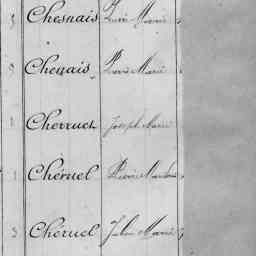 Chesnais Pierre Marie
Chesnais Pierre Marie
Cherruel Joseph Marie
Chéruel Pierre
Chéruel Julien Marie